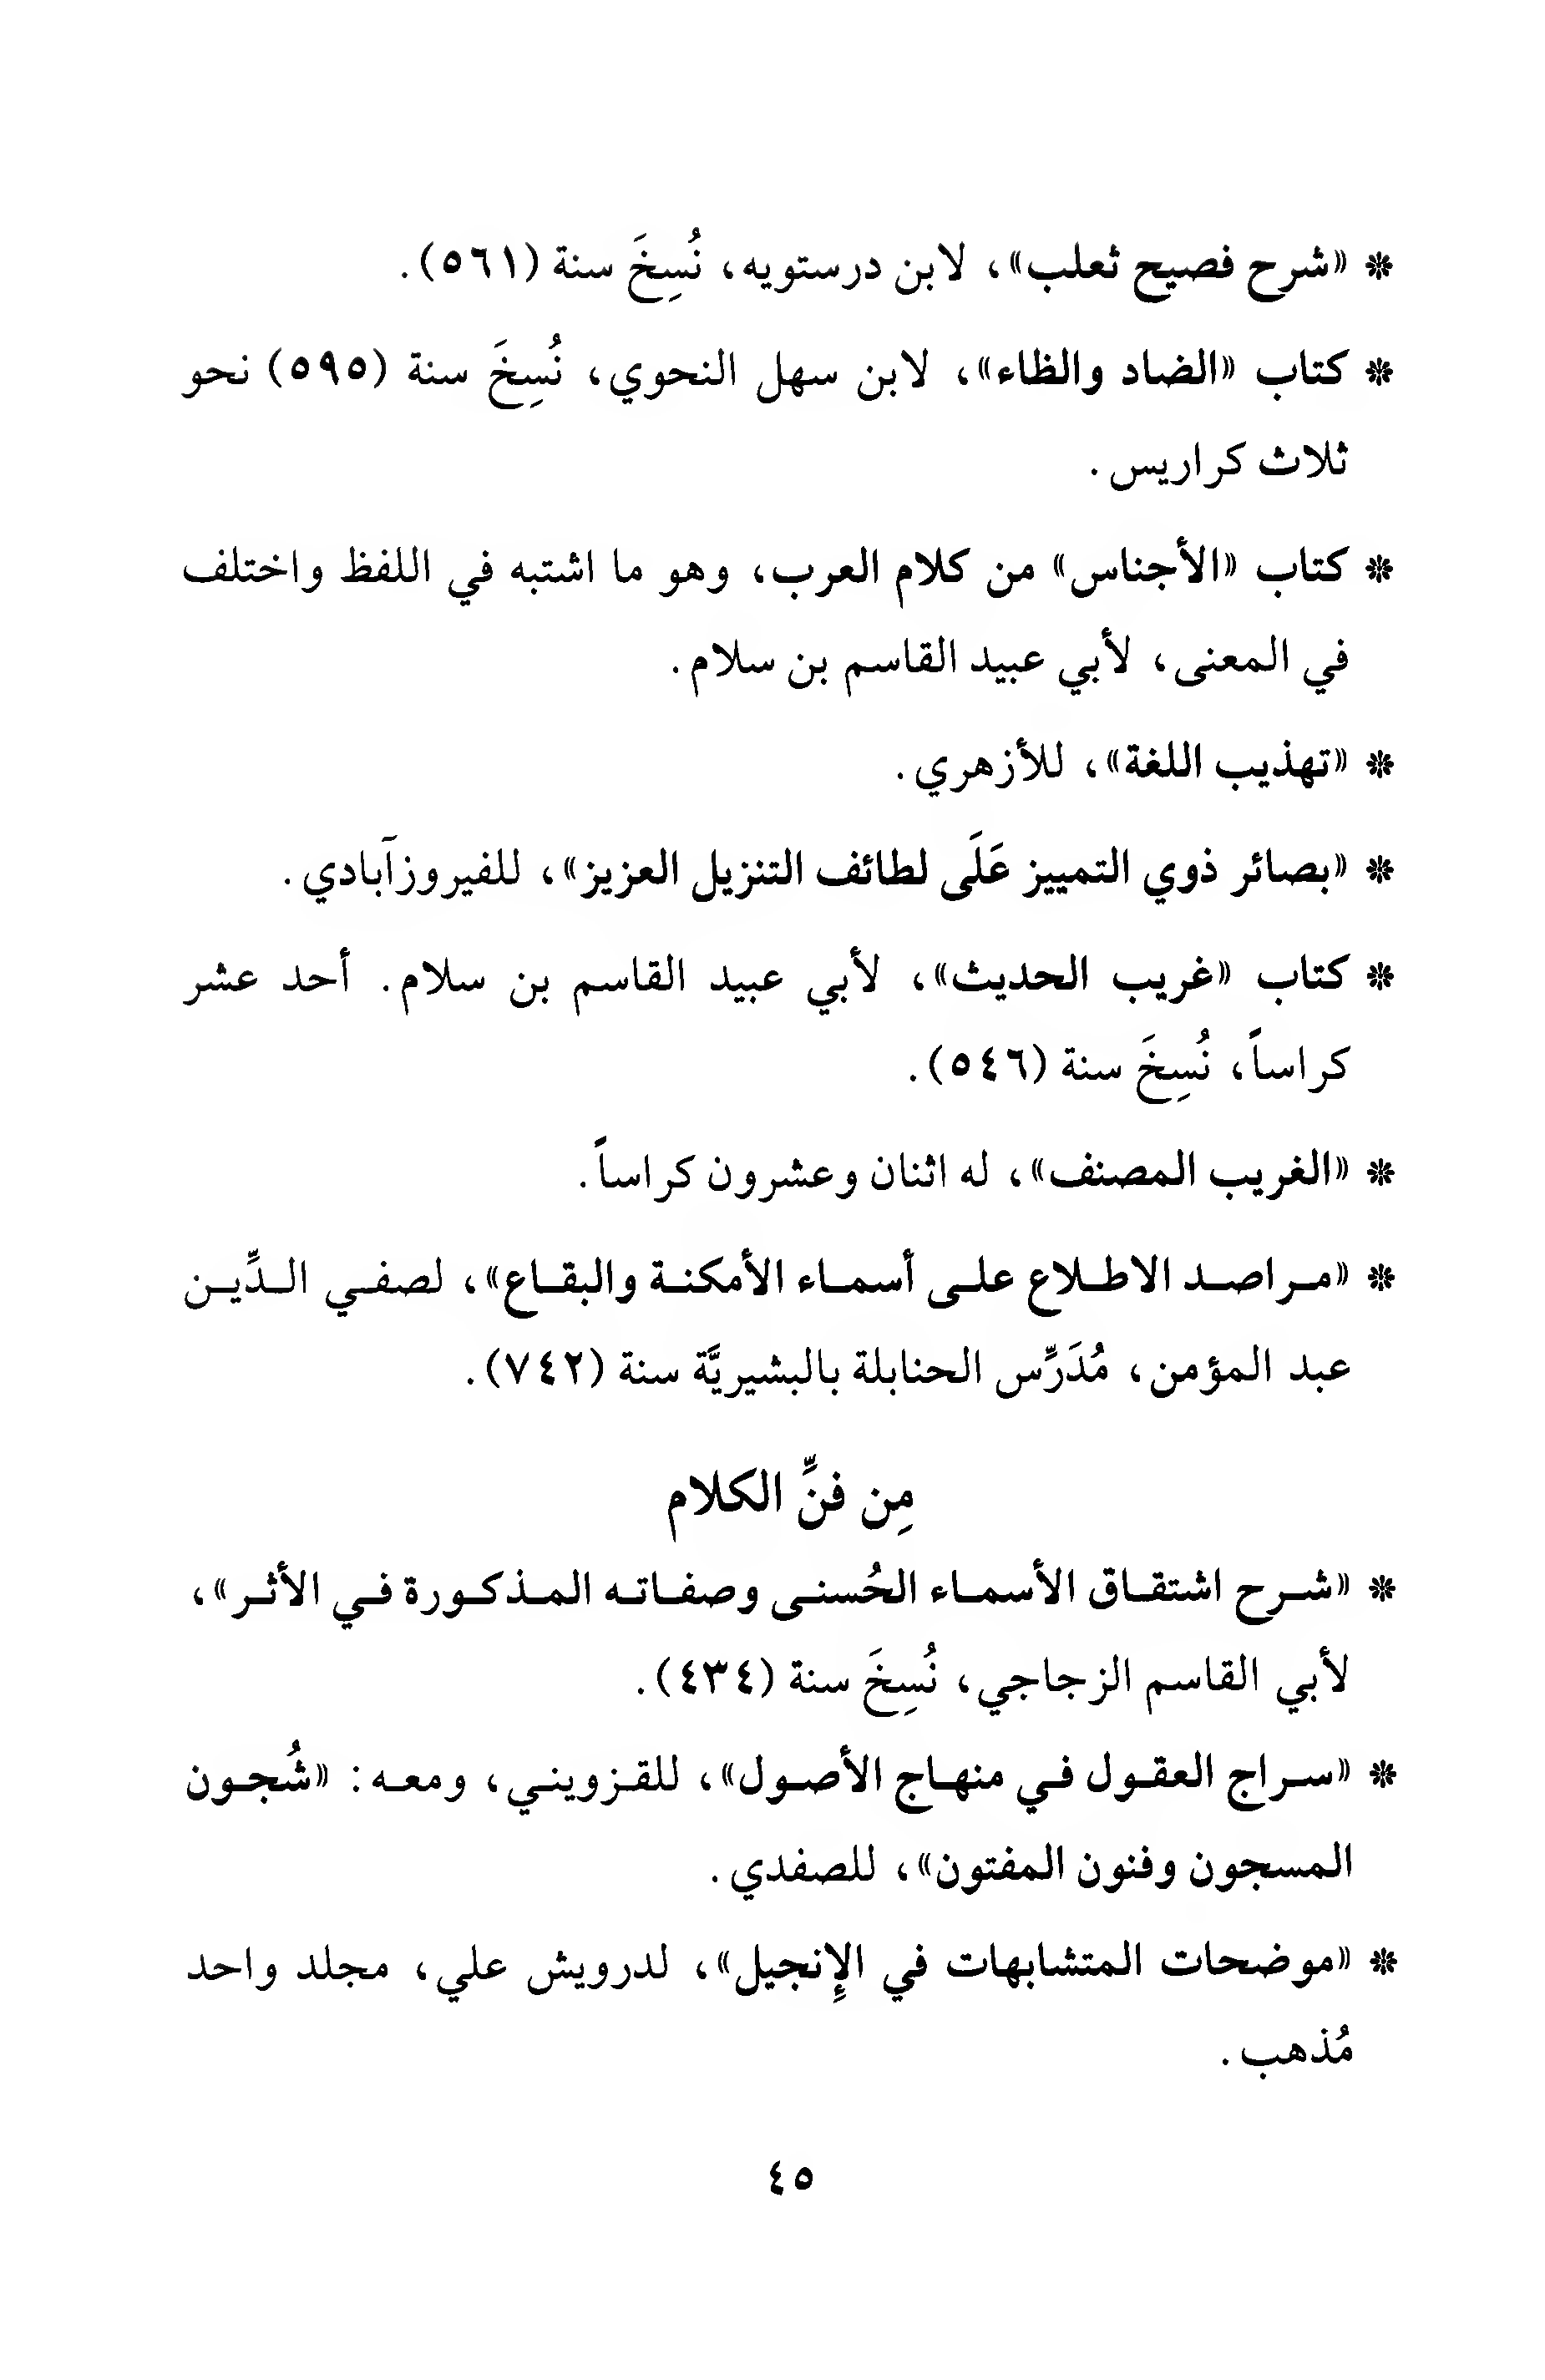 * «شرح فصيح ثعلب»، لابن درستويه، نُسِخَ سنة (٥٦١).
* كتاب «الضاد والظاء»، لابن سهل النحوي، نُسِخَ سنة (٥٩٥) نحو
ثلاث كراريس.
* كتاب «الأجناس» من كلام العرب، وهو ما اشتبه في اللفظ واختلف
في المعنى، لأبي عبيد القاسم بن سلام.
* «تهذيب اللغة»، للأزهري.
* «بصائر ذوي التمييز عَلَى لطائف التنزيل العزيز»، للفيروزآبادي.
* كتاب «غريب الحديث»، لأبي عبيد القاسم بن سلام. أحد عشر
كراساً، نُسِخَ سنة (٥٤٦).
* «الغريب المصنف»، له اثنان وعشرون كراساً.
* «مراصد الاطلاع على أسماء الأمكنة والبقاع»، لصفي الدِّين
عبد المؤمن، مُدَرِّس الحنابلة بالبشيريَّة سنة (٧٤٢).
مِن فنِّ الكلام
* «شرح اشتقاق الأسماء الحُسنى وصفاته المذكورة في الأثر»،
لأبي القاسم الزجاجي، نُسِخَ سنة (٤٣٤).
* «سراج العقول في منهاج الأصول»، للقزويني، ومعه: «شُجون
المسجون وفنون المفتون»، للصفدي.
* «موضحات المتشابهات في الإِنجيل»، لدرويش علي، مجلد واحد
مُذهب.
٤٥